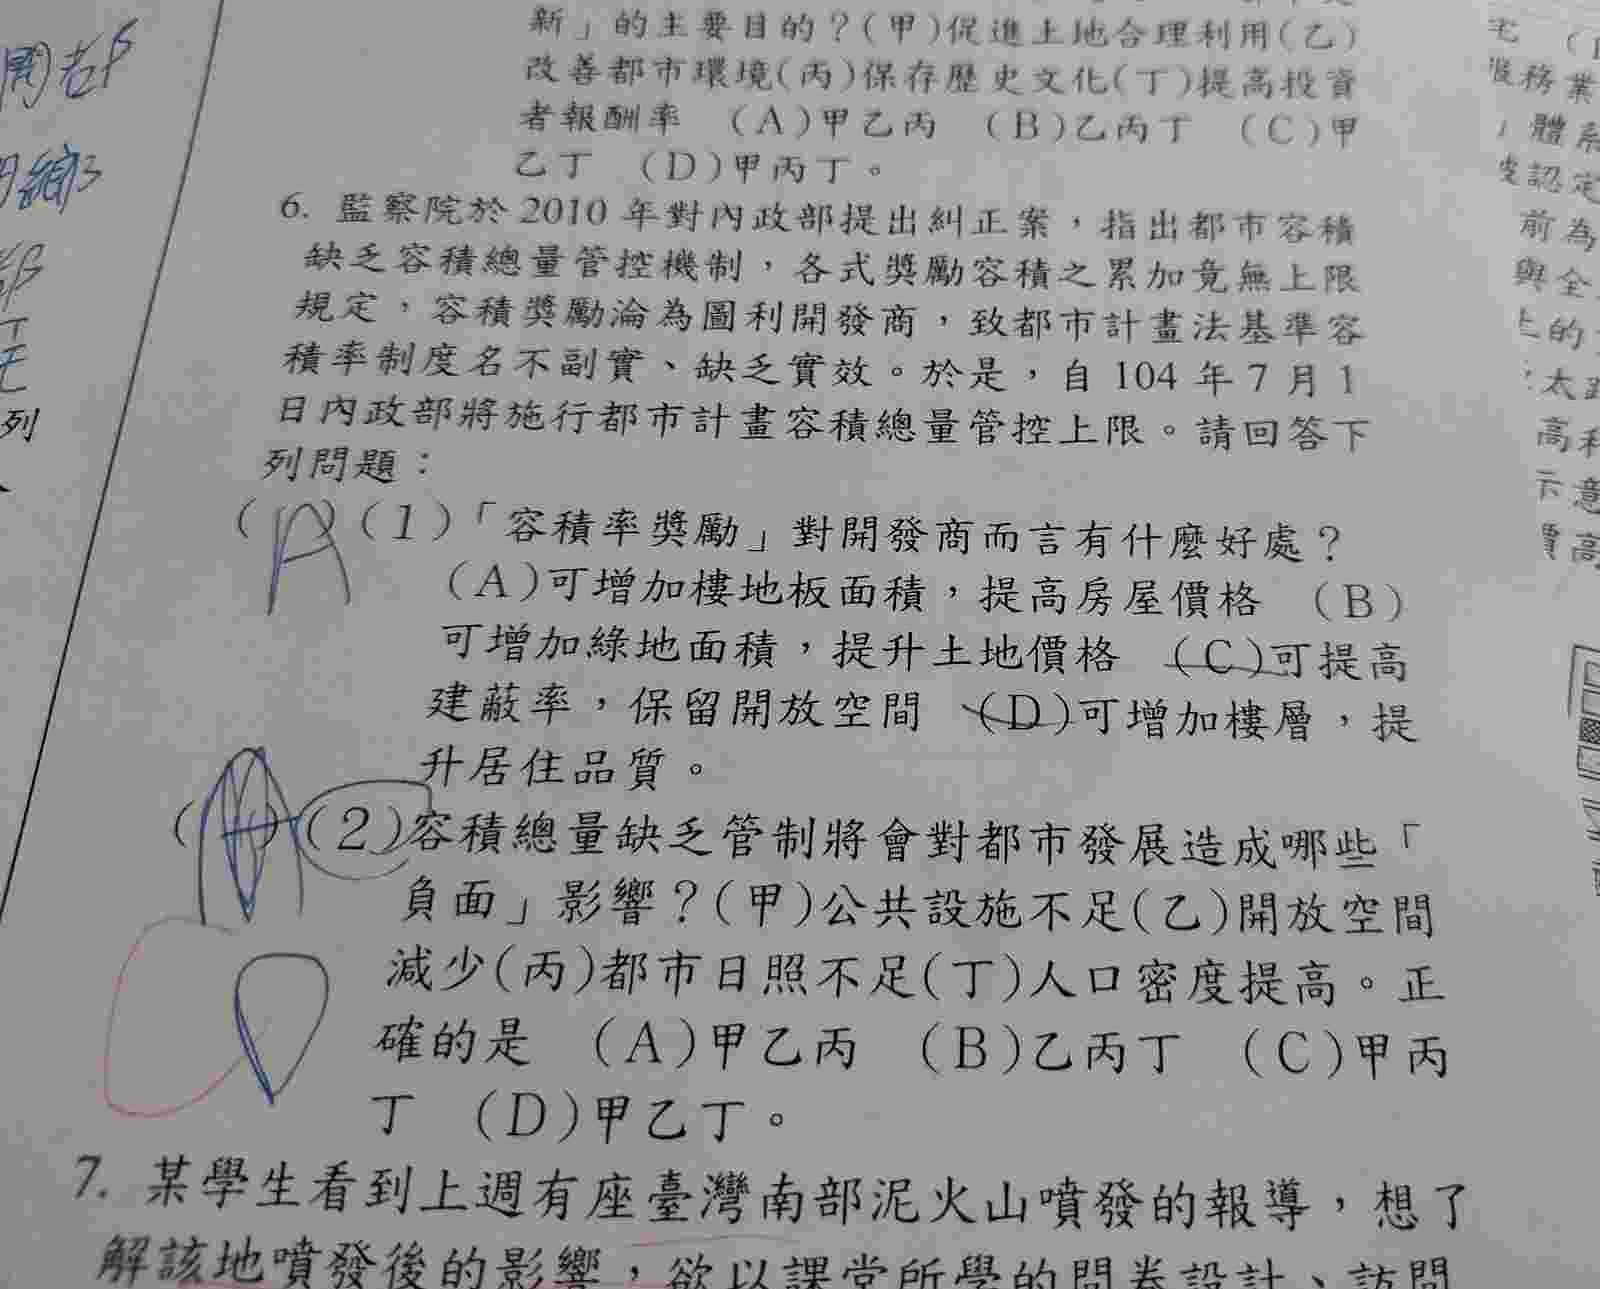 新」的主要目的？(甲)促進土地合理利用(乙)
改善都市環境(丙)保存歷史文化(丁)提高投資
者報酬率 (A)甲乙丙 (B)乙丙丁 (C)甲
乙丁 (D)甲丙丁。
6. 監察院於2010年對內政部提出糾正案，指出都市容積
缺乏容積總量管控機制，各式獎勵容積之累加竟無上限
規定，容積獎勵淪為圖利開發商，致都市計畫法基準容
積率制度名不副實、缺乏實效。於是，自104年7月1
日內政部將施行都市計畫容積總量管控上限。請回答下
列問題：
(A)(1)「容積率獎勵」對開發商而言有什麼好處？
(A)可增加樓地板面積，提高房屋價格 (B)
可增加綠地面積，提升土地價格 (C)可提高
建蔽率，保留開放空間 (D)可增加樓層，提
升居住品質。
( )(2)容積總量缺乏管制將會對都市發展造成哪些「
負面」影響？(甲)公共設施不足(乙)開放空間
減少(丙)都市日照不足(丁)人口密度提高。正
確的是 (A)甲乙丙 (B)乙丙丁 (C)甲丙
丁 (D)甲乙丁。
7. 某學生看到上週有座臺灣南部泥火山噴發的報導，想了
解該地噴發後的影響，欲以課堂所學的問卷設計、訪問
列
務業
體
認定
前為
與全
的
太
高
示意
價高